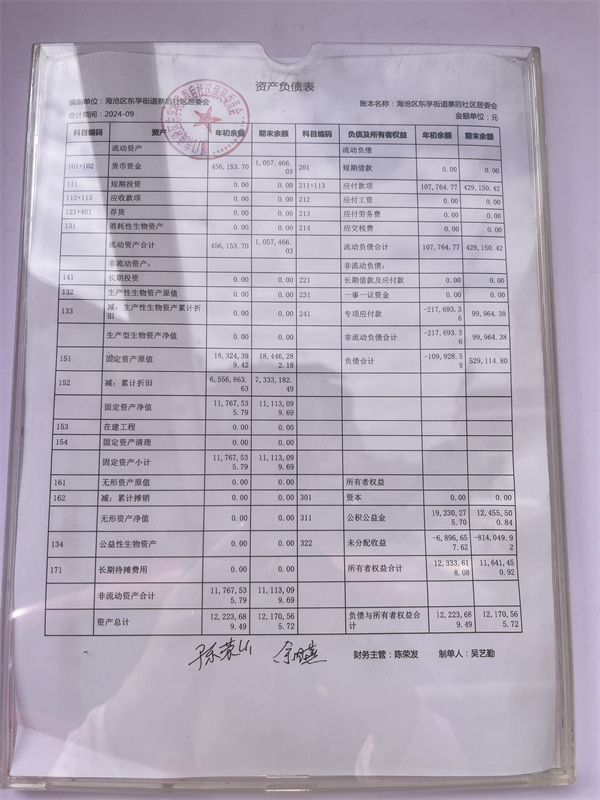 资产负债表
编制单位：海沧区东孚街道寨后社区居委会 账本名称：海沧区东孚街道寨后社区居委会
会计期间：2024-09 金额单位：元
科目编码 资产 年初余额 期末余额 科目编码 负债及所有者权益 年初余额 期末余额
流动资产 流动负债
101+102 货币资金 456,153.70 1,057,466.03 201 短期借款 0.00 0.00
111 短期投资 0.00 0.00 211+113 应付款项 107,764.77 429,150.42
112+113 应收款项 0.00 0.00 212 应付工资 0.00 0.00
121+401 存货 0.00 0.00 213 应付劳务费 0.00 0.00
131 消耗性生物资产 0.00 0.00 214 应交税费 0.00 0.00
流动资产合计 456,153.70 1,057,466.03 流动负债合计 107,764.77 429,150.42
非流动资产： 非流动负债：
141 长期投资 0.00 0.00 221 长期借款及应付款 0.00 0.00
132 生产性生物资产原值 0.00 0.00 231 一事一议资金 0.00 0.00
133 减：生产性生物资产累计折旧 0.00 0.00 241 专项应付款 -217,693.36 99,964.38
生产型生物资产净值 0.00 0.00 非流动负债合计 -217,693.36 99,964.38
151 固定资产原值 18,324,399.42 18,446,282.18 负债合计 -109,928.59 529,114.80
152 减：累计折旧 6,556,863.63 7,333,182.49
固定资产净值 11,767,535.79 11,113,099.69
153 在建工程 0.00 0.00
154 固定资产清理 0.00 0.00
固定资产小计 11,767,535.79 11,113,099.69
161 无形资产原值 0.00 0.00 所有者权益
162 减：累计摊销 0.00 0.00 301 资本 0.00 0.00
无形资产净值 0.00 0.00 311 公积公益金 19,230,275.70 12,455,500.84
134 公益性生物资产 0.00 0.00 322 未分配收益 -6,896,657.62 -814,049.92
171 长期待摊费用 0.00 0.00 所有者权益合计 12,333,618.08 11,641,450.92
非流动资产合计 11,767,535.79 11,113,099.69
资产总计 12,223,689.49 12,170,565.72 负债与所有者权益合计 12,223,689.49 12,170,565.72
财务主管：陈荣发 制单人：吴艺勤